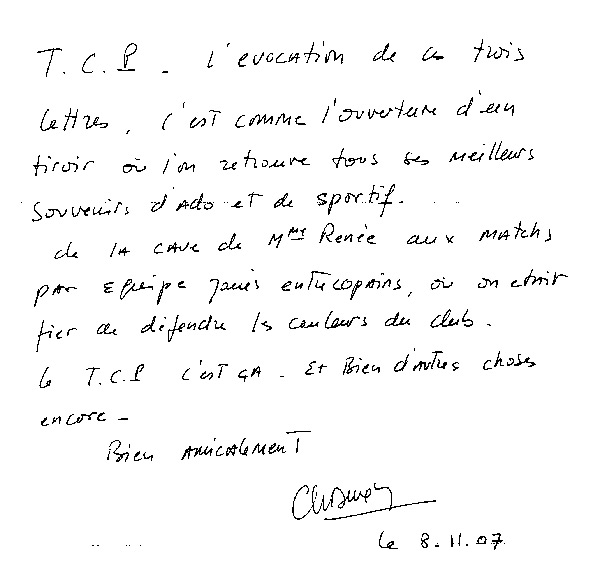 T.C.P. - l'evocation de ces trois
lettres, c'est comme l'ouverture d'un
tiroir où l'on retrouve tous ses meilleurs
souvenirs d'ado et de sportif.
de la cave de Mme Renée aux matchs
par equipe joués entre copains, où on etait
fier de défendre les couleurs du club.
le T.C.P c'est ça. Et Bien d'autres choses
encore -
Bien amicalement
le 8.11.07